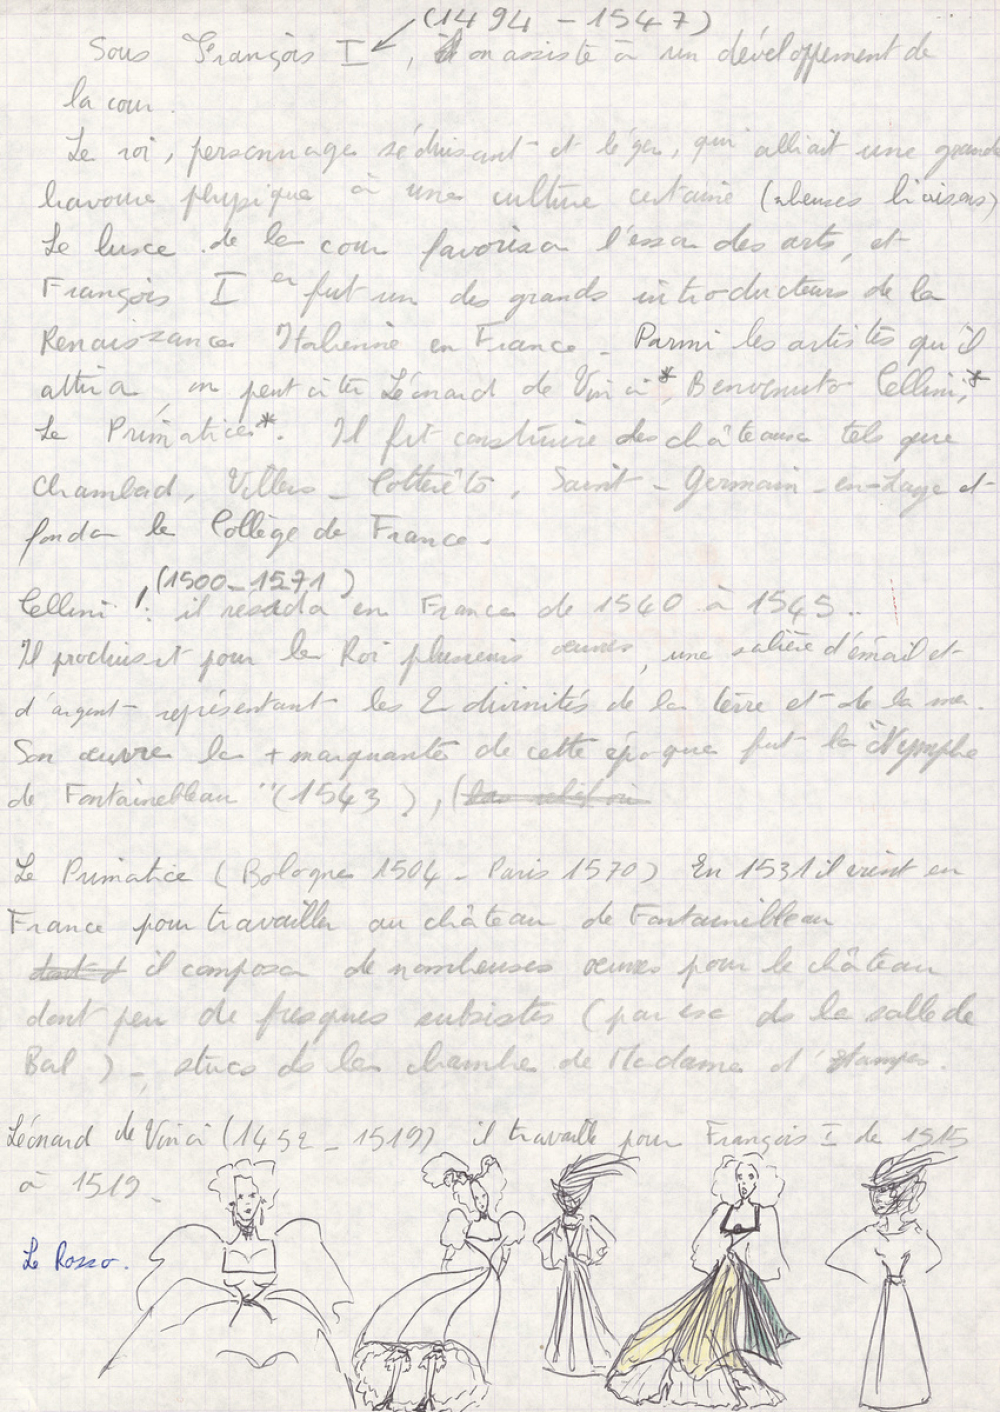 (1494 - 1547)
Sous François I, on assiste à un développement de
la cour.
Le roi, personnage séduisant et léger, qui alliait une grande
bravoure physique à une culture certaine (nbeuses liaisons)
Le luxe de la cour favorisa l'essor des arts, et
François I er fut un des grands introducteurs de la
Renaissance Italienne en France. Parmi les artistes qu'il
attira, on peut citer Léonard de Vinci*, Benvenuto Cellini,*
Le Primatice*. Il fit construire des châteaux tels que
Chambord, Villers-Cotterêts, Saint-Germain-en-Laye et
fonda le Collège de France.
(1500-1571)
Cellini : il résida en France de 1540 à 1545..
Il produisit pour le Roi plusieurs œuvres, une salière d'émail et
d'argent représentant les 2 divinités de la terre et de la mer.
Son œuvre la + marquante de cette époque fut la "Nymphe
de Fontainebleau" (1543),
Le Primatice (Bologne 1504 - Paris 1570) En 1531 il vient en
France pour travailler au château de Fontainebleau
il composa de nombreuses œuvres pour le château
dont peu de fresques subsistes (par ex ds la salle de
Bal) -, stucs ds la chambre de Madame d'Etampes.
Léonard de Vinci (1452 - 1519) il travaille pour François I de 1515
à 1519.
Le Rosso.